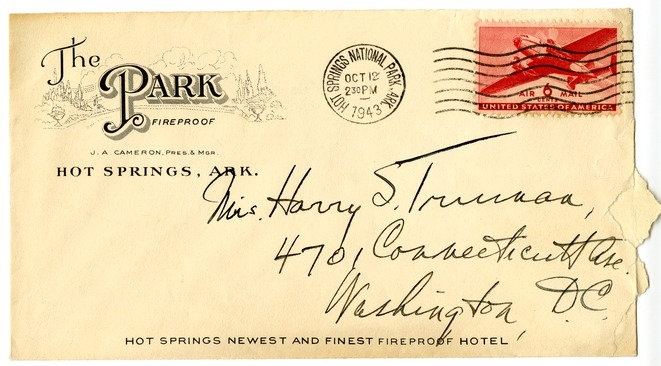 The
PARK
FIREPROOF
J. A. CAMERON, PRES. & MGR.
HOT SPRINGS, ARK.
HOT SPRINGS NATIONAL PARK, ARK.
OCT 12
2 30 PM
1943
AIR 6 MAIL
CENTS
UNITED STATES OF AMERICA
Mrs. Harry S. Truman,
4701 Connecticut Ave.
Washington, D.C.
HOT SPRINGS NEWEST AND FINEST FIREPROOF HOTEL